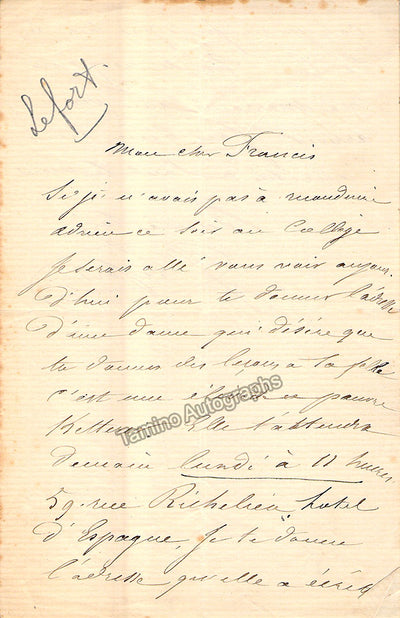 Lefort.
Mon cher Francis
Si je n'avais pas à reconduire
Adrien ce soir au Collège
je serais allé vous voir aujour-
d'hui pour te donner l'adresse
d'une dame qui désire que
tu donnes des leçons à sa fille
c'est une élève de ce pauvre
Ketterer. Elle t'attendra
Tamino Autographs
demain lundi à 11 heures
59 rue Richelieu hotel
d'Espagne, je te donne
l'adresse qu'elle a écrit